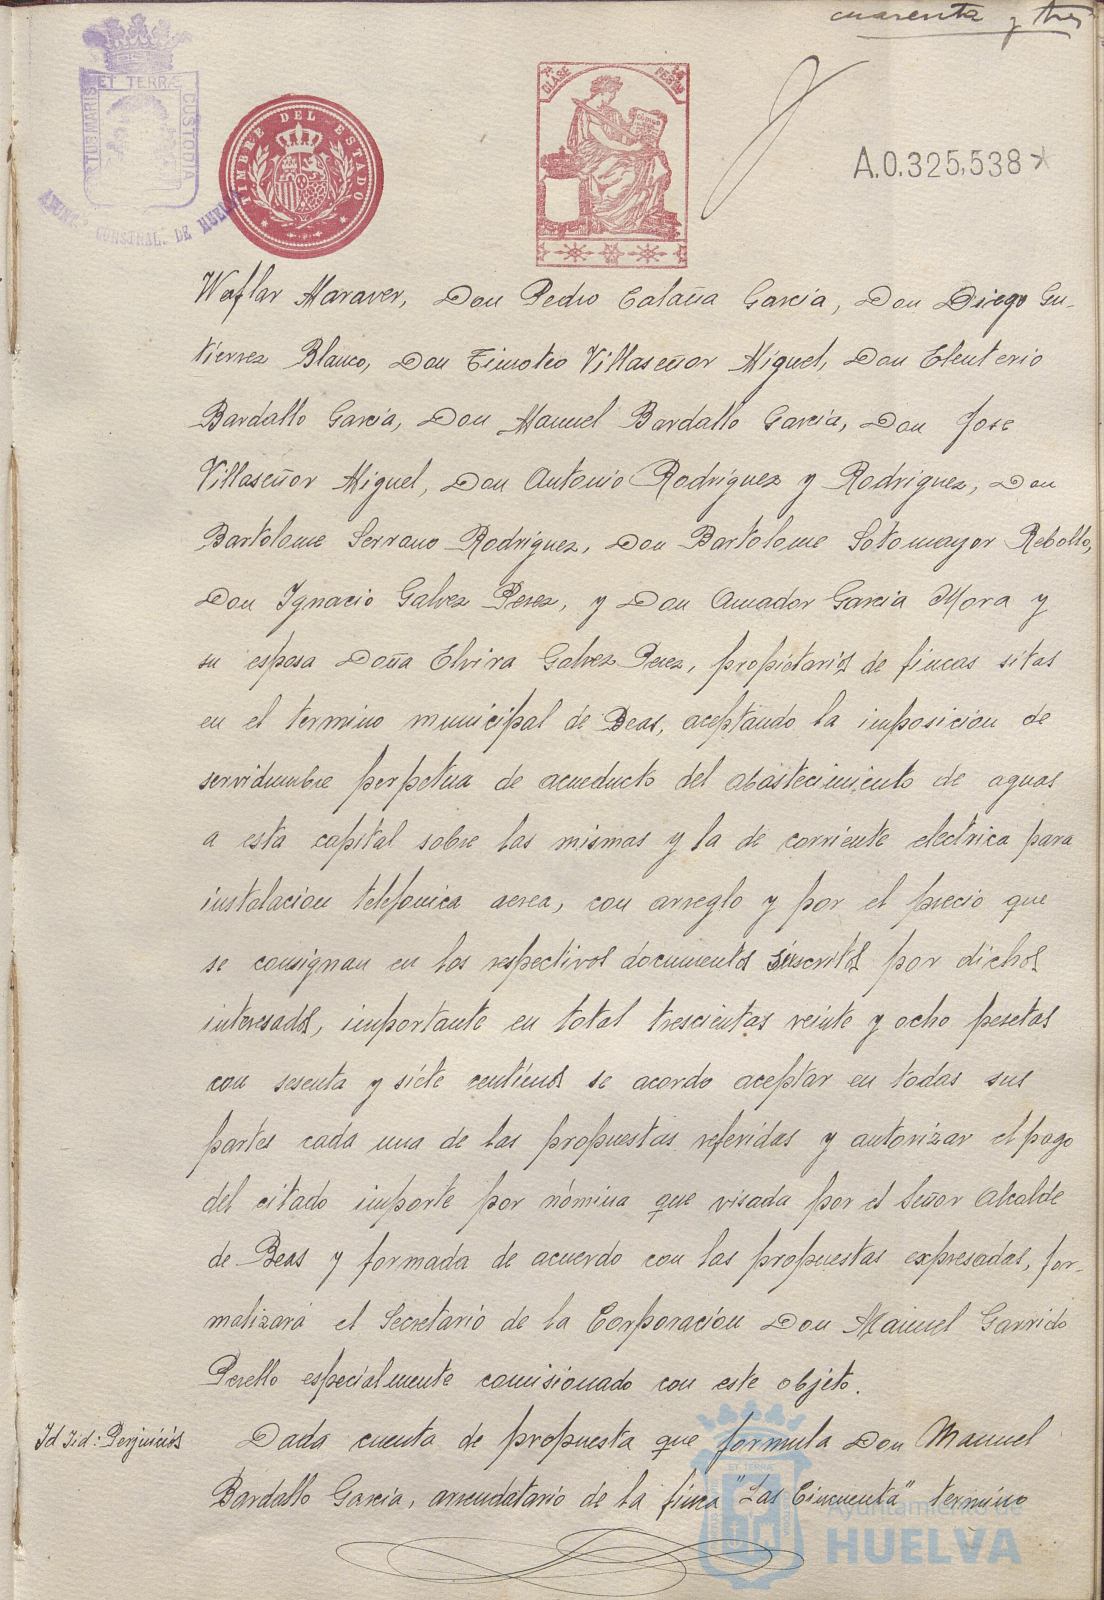 cuarenta y tres
ET TERRÆ
PORTUS MARIS
CUSTODIA
AYUNT. CONSTNAL. DE HUELVA
TIMBRE DEL ESTADO
7ª CLASE
A.0.325,538*
Waflar Maraver, Don Pedro Calaña Garcia, Don Diego Gu-
tierrez Blanco, Don Timoteo Villaseñor Miguel, Don Eleuterio
Bardallo Garcia, Don Manuel Bardallo Garcia, Don Jose
Villaseñor Miguel, Don Antonio Rodriguez y Rodriguez, Don
Bartolome Serrano Rodriguez, Don Bartolome Sotomayor Rebollo,
Don Ignacio Galvez Perez, y Don Amador Garcia Mora y
su esposa Doña Elvira Galvez Perez, propietarios de fincas sitas
en el termino municipal de Beas, aceptando la imposicion de
servidumbre perpetua de acueducto del abastecimiento de aguas
a esta capital sobre las mismas y la de corriente electrica para
instalacion telefonica aerea, con arreglo y por el precio que
se consignan en los respectivos documentos suscritos por dichos
interesados, importante en total trescientas veinte y ocho pesetas
con sesenta y siete centimos se acordo aceptar en todas sus
partes cada una de las propuestas referidas y autorizar el pago
del citado importe por nómina que visada por el Señor Alcalde
de Beas y formada de acuerdo con las propuestas expresadas, for-
malizará el Secretario de la Corporación Don Manuel Garrido
Perello especialmente comisionado con este objeto.
Id Iid: Perjuicios
Dada cuenta de propuesta que formula Don Manuel
Bardallo Garcia, arrendatario de la finca "Las Cincuenta" termino
Ayuntamiento de
HUELVA